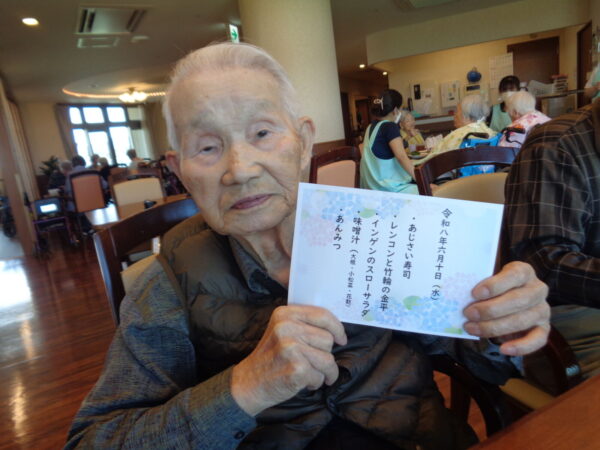 令和八年六月十日（水）
・あじさい寿司
・レンコンと竹輪の金平
インゲンのスローサラダ
・味噌汁（大根・小松菜・花麩）
・あんみつ